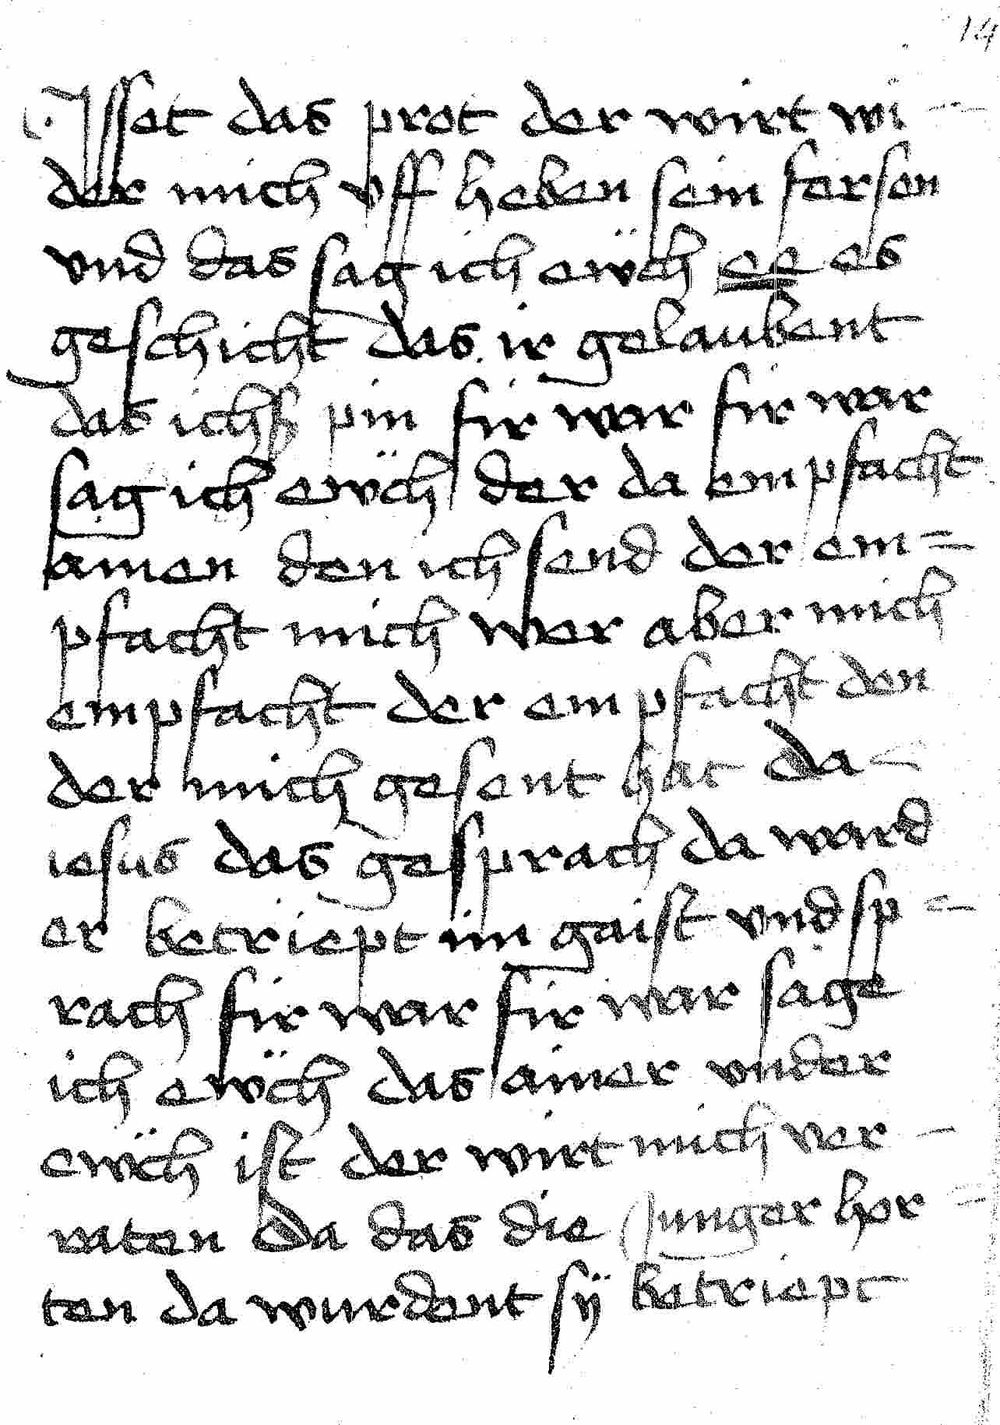 14
Isset das prot der wirt wi-
der mich vff heben sein fersen
vnd das sag ich ewch ee es
geschicht das ir gelaubent
das ichß pin fir war fir war
sag ich ewch der da empfacht
amen den ich send der em=
pfacht mich wer aber mich
empfacht der empfacht den
der mich gesent hat da
iesus das gesprach da ward
er betriept im gaist vnd sp=
rach fir war fir war sage
ich ewch das ainer vnder
ewch ist der wirt mich ver-
raten da das die Junger hor=
ten da wurdent sÿ betriept